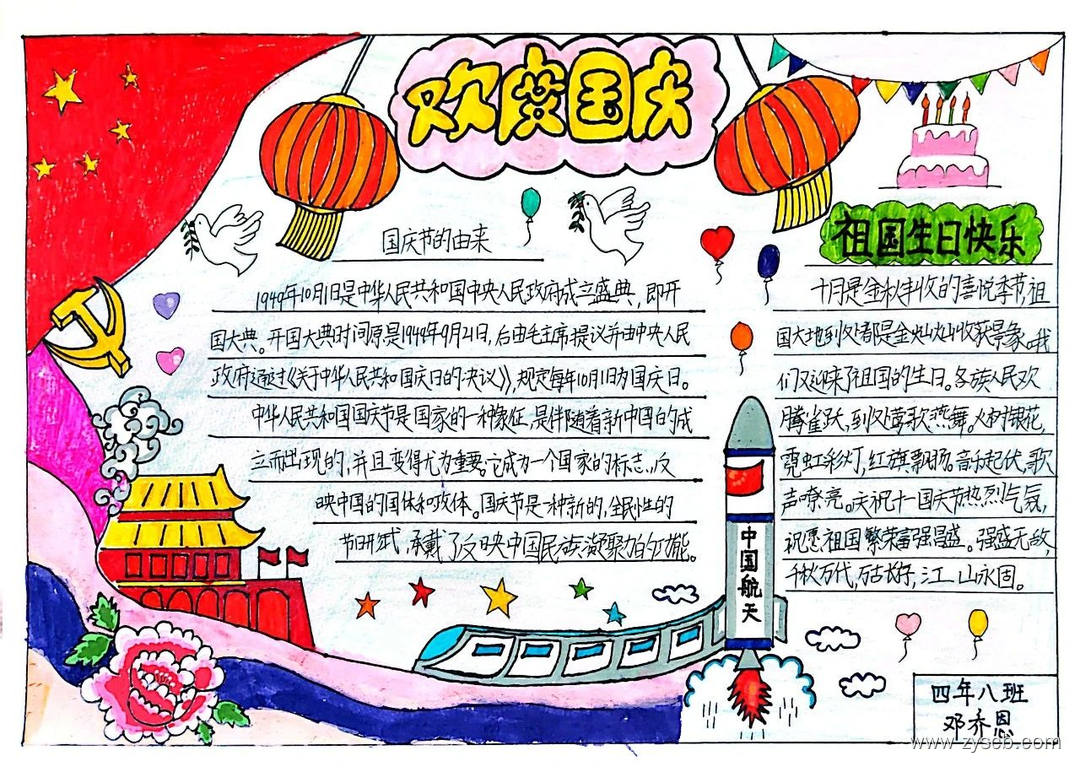 欢度国庆
国庆节的由来
1949年10月1日是中华人民共和国中央人民政府成立盛典,即开
国大典。开国大典时间原是1949年9月21日,后由毛主席提议并由中央人民
政府通过《关于中华人民共和国庆日的决议》,规定每年10月1日为国庆日。
中华人民共和国国庆节是国家的一种象征,是伴随着新中国的成
立而出现的,并且变得尤为重要。它成为一个国家的标志,反
映中国的国体和政体。国庆节是一种新的,全民性的
节日形式,承载了反映中国民族凝聚力的功能。
祖国生日快乐
十月是金秋丰收的喜悦季节,祖
国大地到处都是金灿灿收获景象。我
们又迎来了祖国的生日。各族人民欢
腾雀跃,到处莺歌燕舞。火树银花,
霓虹彩灯,红旗飘扬。音乐起伏,歌
声嘹亮。庆祝十一国庆节热烈气氛,
祝愿祖国繁荣富强昌盛。强盛无敌,
千秋万代,万古长存,江山永固。
中国航天
四年八班
邓乔恩
www.zyseb.com